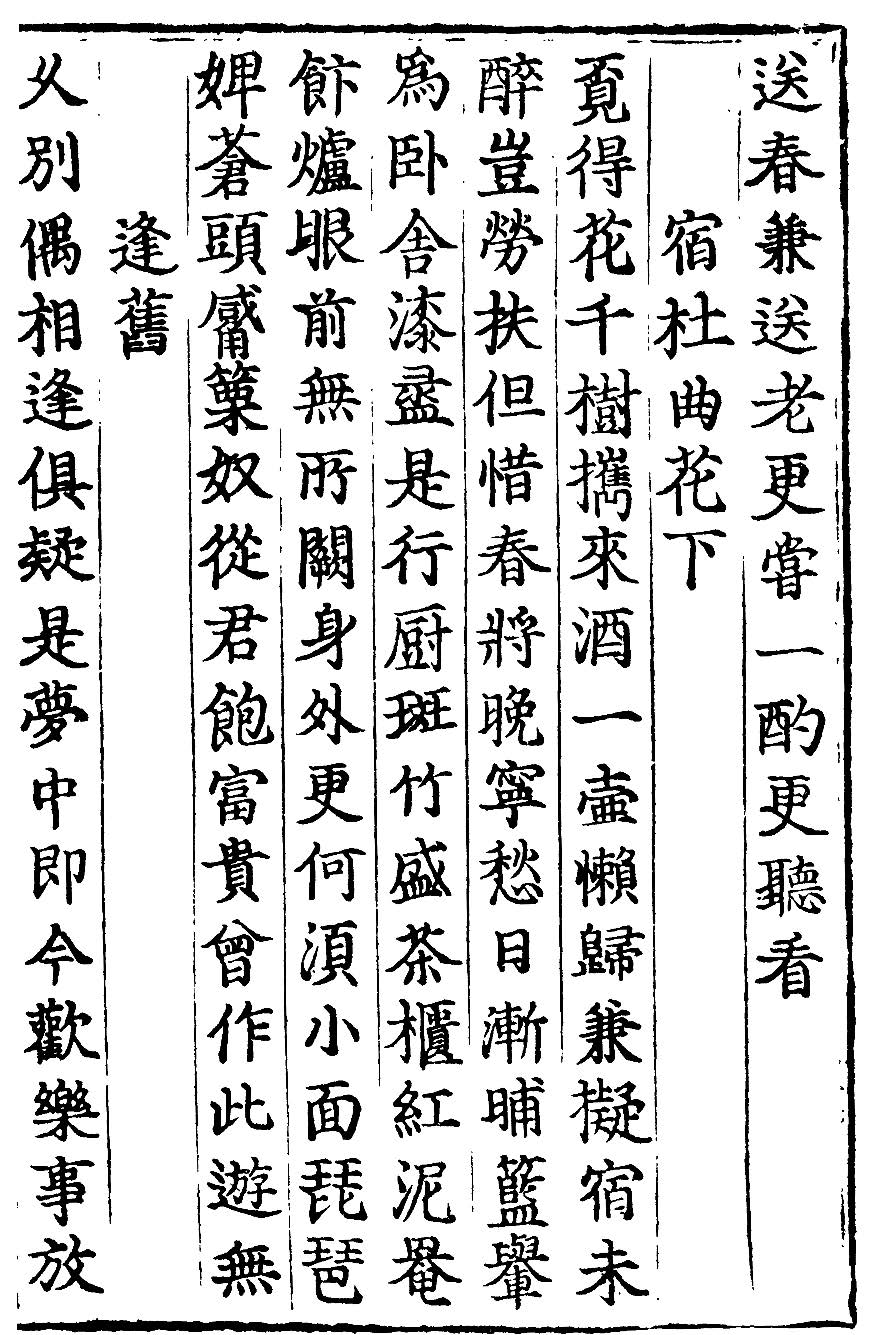 送春兼送老更嘗一酌更聽看
宿杜曲花下
覔得花千樹攜來酒一壷懶歸兼擬宿未
醉豈勞扶但惜春將晚寧愁日漸晡籃轝
爲卧舎漆盝是行厨斑竹盛茶櫃紅泥罨
飰爐眼前無所闕身外更何湏小面琵琶
婢蒼頭觱篥奴從君飽富貴曾作此遊無
逢舊
乆別偶相逢俱疑是夢中即今歡樂事放